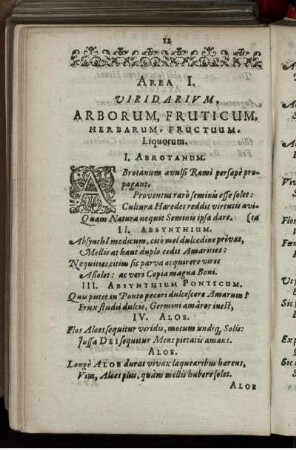 12
AREA I.
VIRIDARIVM,
ARBORUM, FRUTICUM,
HERBARUM, FRUCTUUM,
Liquorum.
I. ABROTANUM.
ABrotanum avulsi Rami persæpè pro-
pagant,
Proventus rarò seminis esse solet:
Cultura Hæredes reddit virtutis avi-
Quam Natura nequit Seminis ipsa dare. (tæ
II. ABSYNTHIUM.
Absynthî modicum, cito mel dulcedine privat,
Mellis at haut duplo cedit Amarities:
Nequities citius sic parva acquirere vires
Assolet: ac vers Copia magna Boni.
III. ABSYNTHIUM PONTICUM.
Quis putet in Ponto pecori dulcescere Amarum?
Frux studii dulcis, Germini amàror inest,
IV. ALOE.
Flos Aloes sequitur viridis, motum undiq, Solis:
Jussa DEI sequitur Mens pietatis amans.
ALOE.
Longè ALOE durat vivax laquearibus hærens,
Vita, Aloes plus, quàm mellis habere solet.
ALOE